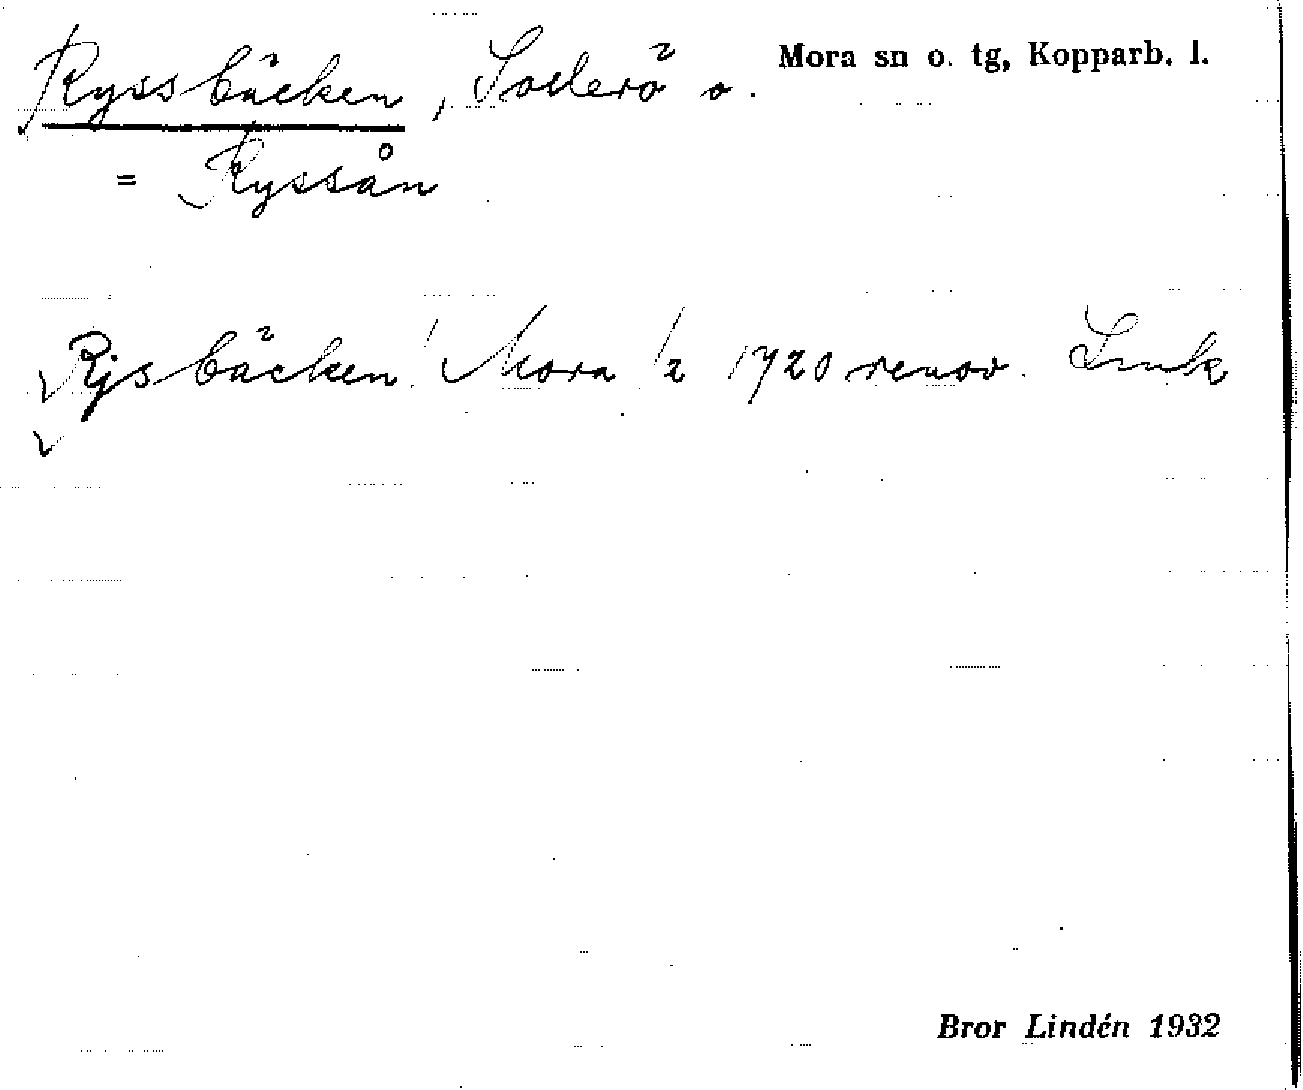 Ryssbäcken, Sollerö o. Mora sn o. tg, Kopparb. l.
= Ryssån
Rysbäcken! Mora 1/2 1720 renov. Lmk
Bror Lindén 1932